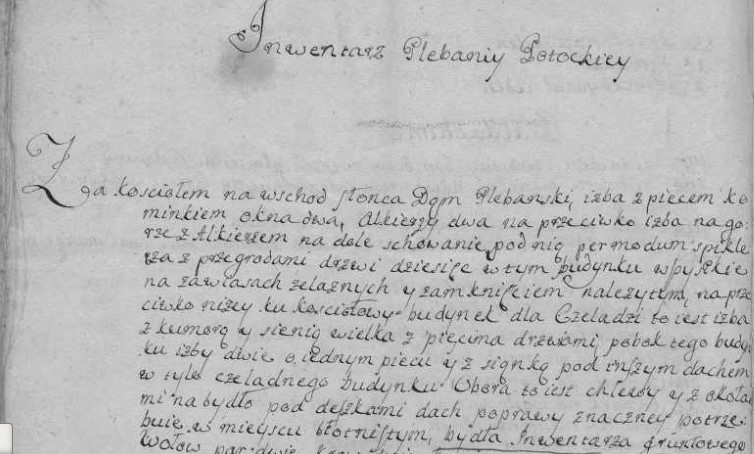 Inwentarz Plebaniy Potockiey
Za kosciołem na wschod słonca Dom Plebanski, izba z piecem ko
minkiem okna dwa, Alkierzy dwa na przeciwko izba na go,
rze z Alkierzem na dole schowanie pod nią per modum spikle
rza z przegrodami drzwi dziesięc w tym budynku wszystkie
na zawiasach żelaznych y zamknięciem należytym, na prze
ciwko niżey ku kosciołowy budynek dla Czeladzi to iest izba
z kumorą y sienią wielka z pięcima drzwiami pobok tego budyn
ku izby dwie o iednym piecu y z sionką pod inszym dachem
w tyle czeladnego budynku Obora to iest chlewy y z okoła
mi na bydło pod deszkami dach poprawy znaczney potrze,
buie w mieyscu błotnistym, bydła Inwentarza gruntowego
Wołow par dwie